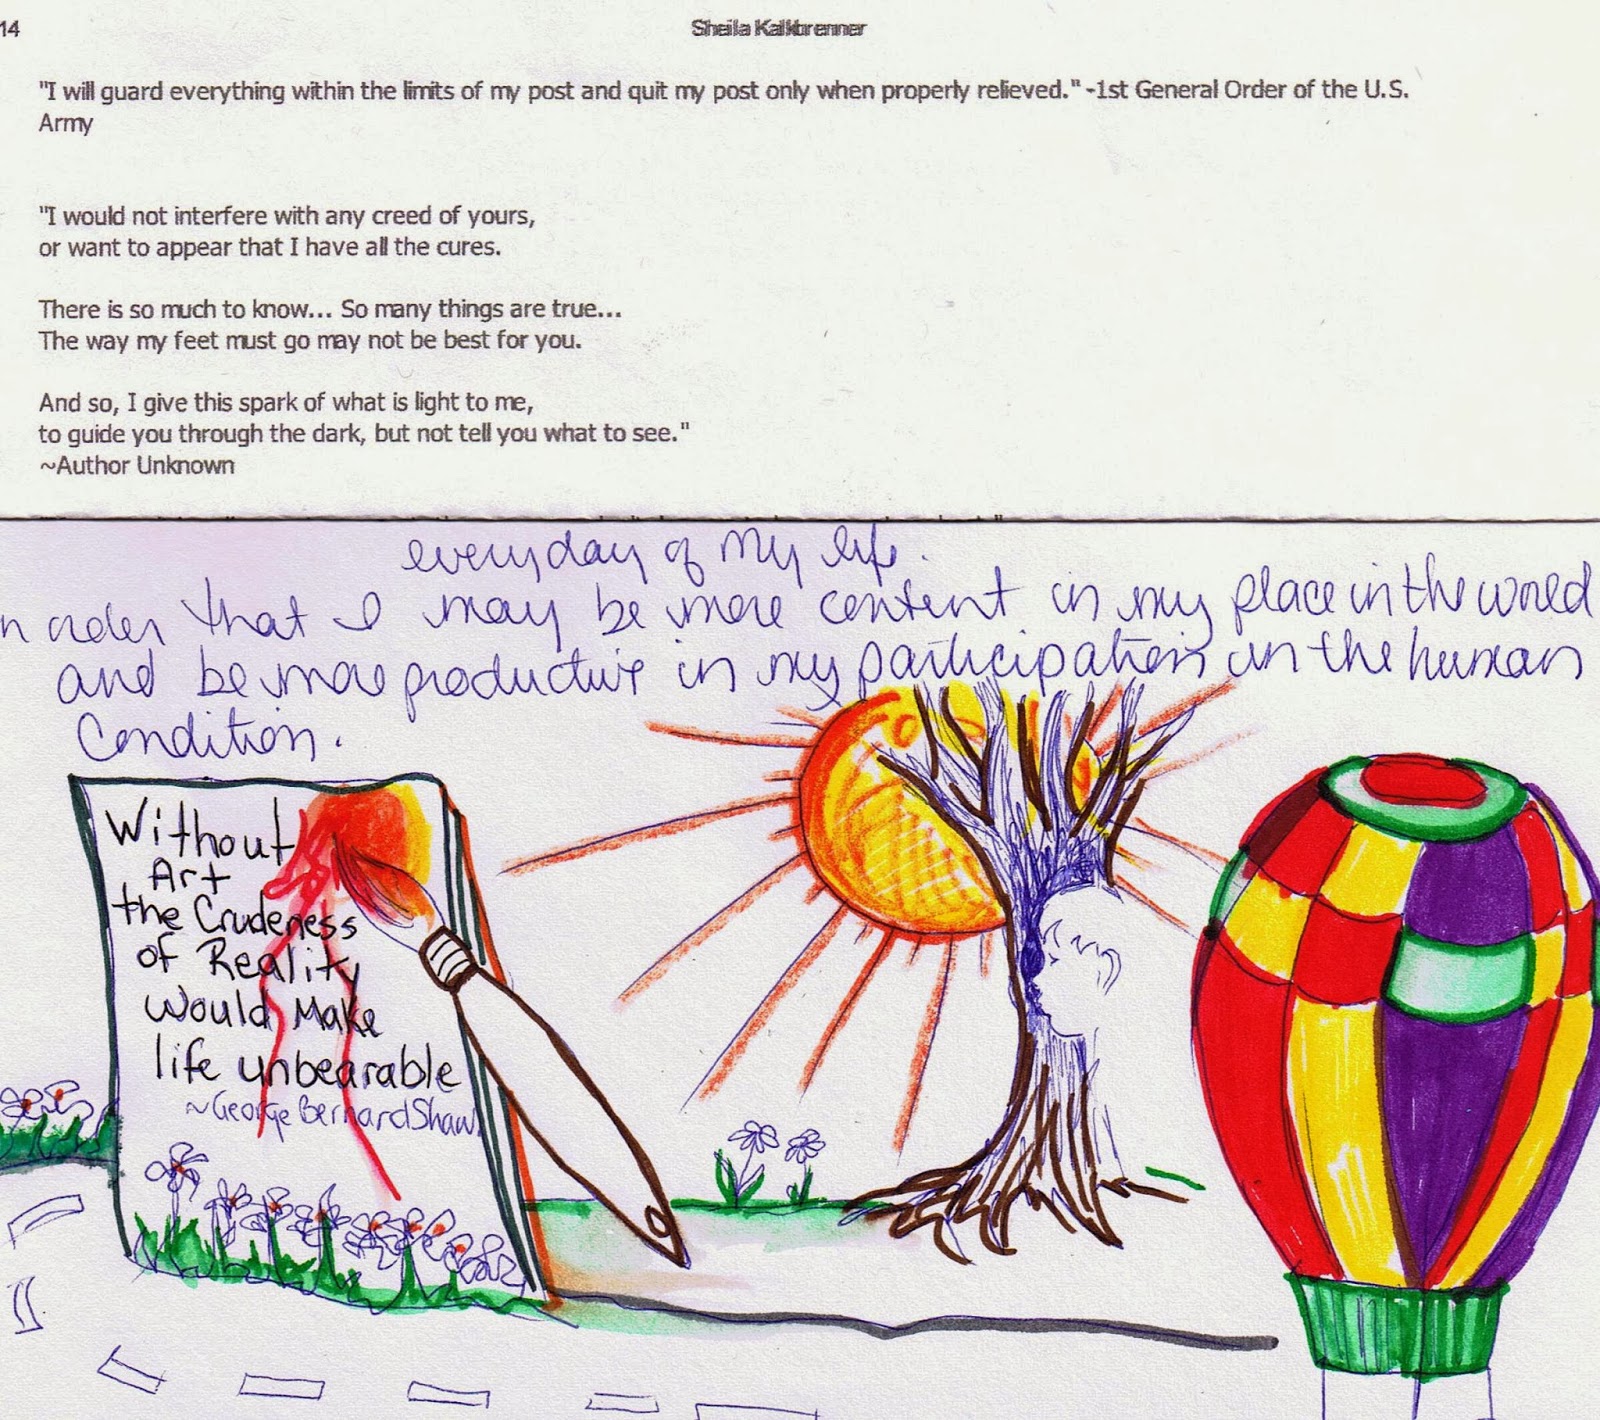 14
Sheila Kalkbrenner
"I will guard everything within the limits of my post and quit my post only when properly relieved." -1st General Order of the U.S.
Army
"I would not interfere with any creed of yours,
or want to appear that I have all the cures.
There is so much to know... So many things are true...
The way my feet must go may not be best for you.
And so, I give this spark of what is light to me,
to guide you through the dark, but not tell you what to see."
~Author Unknown
everyday of my life.
n order that I may be more content in my place in the world
and be more productive in my participation in the human
Condition.
Without
Art
the Crudeness
of Reality
Would Make
life unbearable
~George Bernard Shaw.